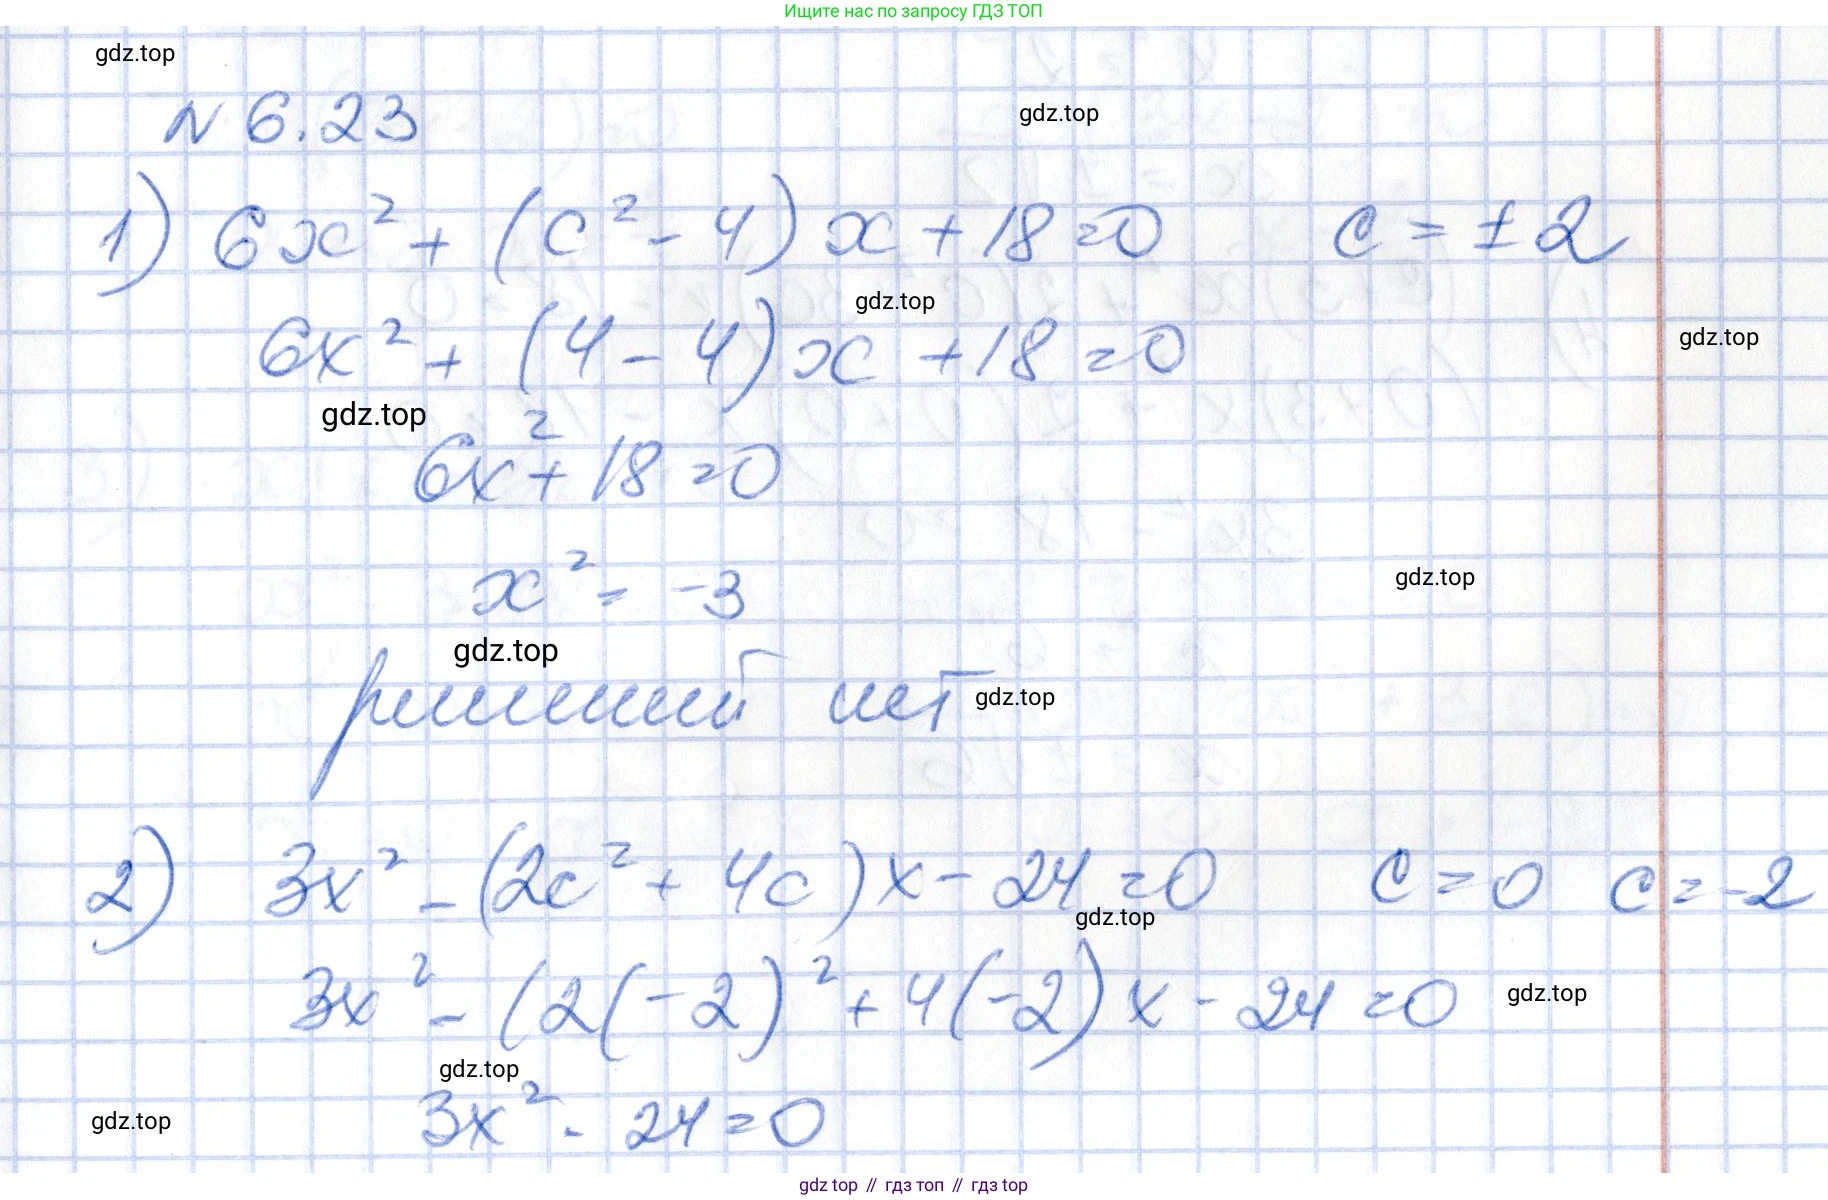 Ищите нас по запросу ГДЗ ТОП
gdz.top
№ 6.23
gdz.top
1) 6x² + (c² - 4)x + 18 = 0    c = ±2
gdz.top
6x² + (4 - 4)x + 18 = 0
gdz.top
gdz.top
6x² + 18 = 0
x² = -3
gdz.top
gdz.top
решений нет
gdz.top
2) 3x² - (2c² + 4c)x - 24 = 0    c = 0  c = -2
gdz.top
3x² - (2(-2)² + 4(-2)x - 24 = 0
gdz.top
gdz.top
3x² - 24 = 0
gdz.top
gdz top // гдз топ // гдз top